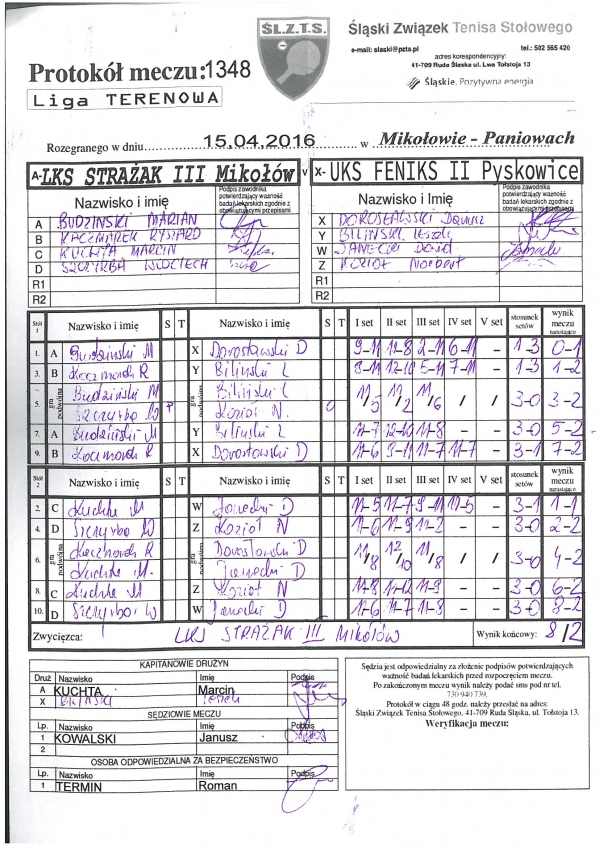 ŚL.Z.T.S.
Śląski Związek Tenisa Stołowego
e-mail: slaski@pzts.pl tel.: 502 565 420
adres korespondencyjny:
41-709 Ruda Śląska ul. Lwa Tołstoja 13
Śląskie. Pozytywna energia
Protokół meczu:1348
Liga TERENOWA
Rozegranego w dniu 15.04.2016 w Mikołowie - Paniowach
A-LKS STRAŻAK III Mikołów v X- UKS FENIKS II Pyskowice
Nazwisko i Imię Podpis zawodnika potwierdzający ważność badań lekarskich zgodnie z obowiązującymi przepisami Nazwisko i Imię Podpis zawodnika potwierdzający ważność badań lekarskich zgodnie z obowiązującymi przepisami
A BUDZIŃSKI MARIAN X DOROSŁAWSKI Dariusz
B KACZMAREK RYSZARD Y BILIŃSKI Leszek
C KUCHTA MARCIN W JANECKI Dawid
D SZCZYRBA WOJCIECH Z KOZIOŁ Norbert
R1 R1
R2 R2
Stół 1 Nazwisko i imię S T Nazwisko i imię S T I set II set III set IV set V set stosunek setów wynik meczu narastająco
1. A Budziński M X Dorosławski D 9-11 11-8 2-11 6-11 - 1-3 0-1
3. B Kaczmarek R Y Biliński L 8-11 12-10 5-11 7-11 - 1-3 1-2
5. gra podwójna Budziński M Biliński L 11/5 11/2 11/6 / / 3-0 3-2
Szczyrba W Kozioł N.
7. A Budziński M Y Biliński L 11-7 12-10 11-8 - - 3-0 5-2
9. B Kaczmarek R X Dorosławski D 11-6 9-11 11-7 11-7 - 3-1 7-2
Stół 2 Nazwisko i imię S T Nazwisko i imię S T I set II set III set IV set V set stosunek setów wynik meczu narastająco
2. C Kuchta M W Janecki D 11-5 11-7 9-11 11-5 - 3-1 1-1
4. D Szczyrba W Z Kozioł N 11-6 11-9 11-2 - - 3-0 2-2
6. gra podwójna Kaczmarek R Dorosławski D 11/8 12/10 11/8 / / 3-0 4-2
Kuchta M. Janecki D
8. C Kuchta M Z Kozioł N 11-8 11-9 - - 3-0 6-2
10. D Szczyrba W W Janecki D 11-6 11-7 11-8 - - 3-0 8-2
Zwycięzca: LKS STRAŻAK III MIKOŁÓW Wynik końcowy: 8/2
KAPITANOWIE DRUŻYN
Druż Nazwisko Imię Podpis
A KUCHTA Marcin
X BILIŃSKI Leszek
SĘDZIOWIE MECZU
Lp. Nazwisko Imię Podpis
1 KOWALSKI Janusz
2
OSOBA ODPOWIEDZIALNA ZA BEZPIECZEŃSTWO
Lp. Nazwisko Imię Podpis
1 TERMIN Roman
Sędzia jest odpowiedzialny za złożenie podpisów potwierdzających
ważność badań lekarskich przed rozpoczęciem meczu.
Po zakończonym meczu wynik należy podać sms pod nr tel.
730 940 739.
Protokół w ciągu 48 godz. należy przesłać na adres:
Śląski Związek Tenisa Stołowego, 41-709 Ruda Śląska, ul. Tołstoja 13.
Weryfikacja meczu: